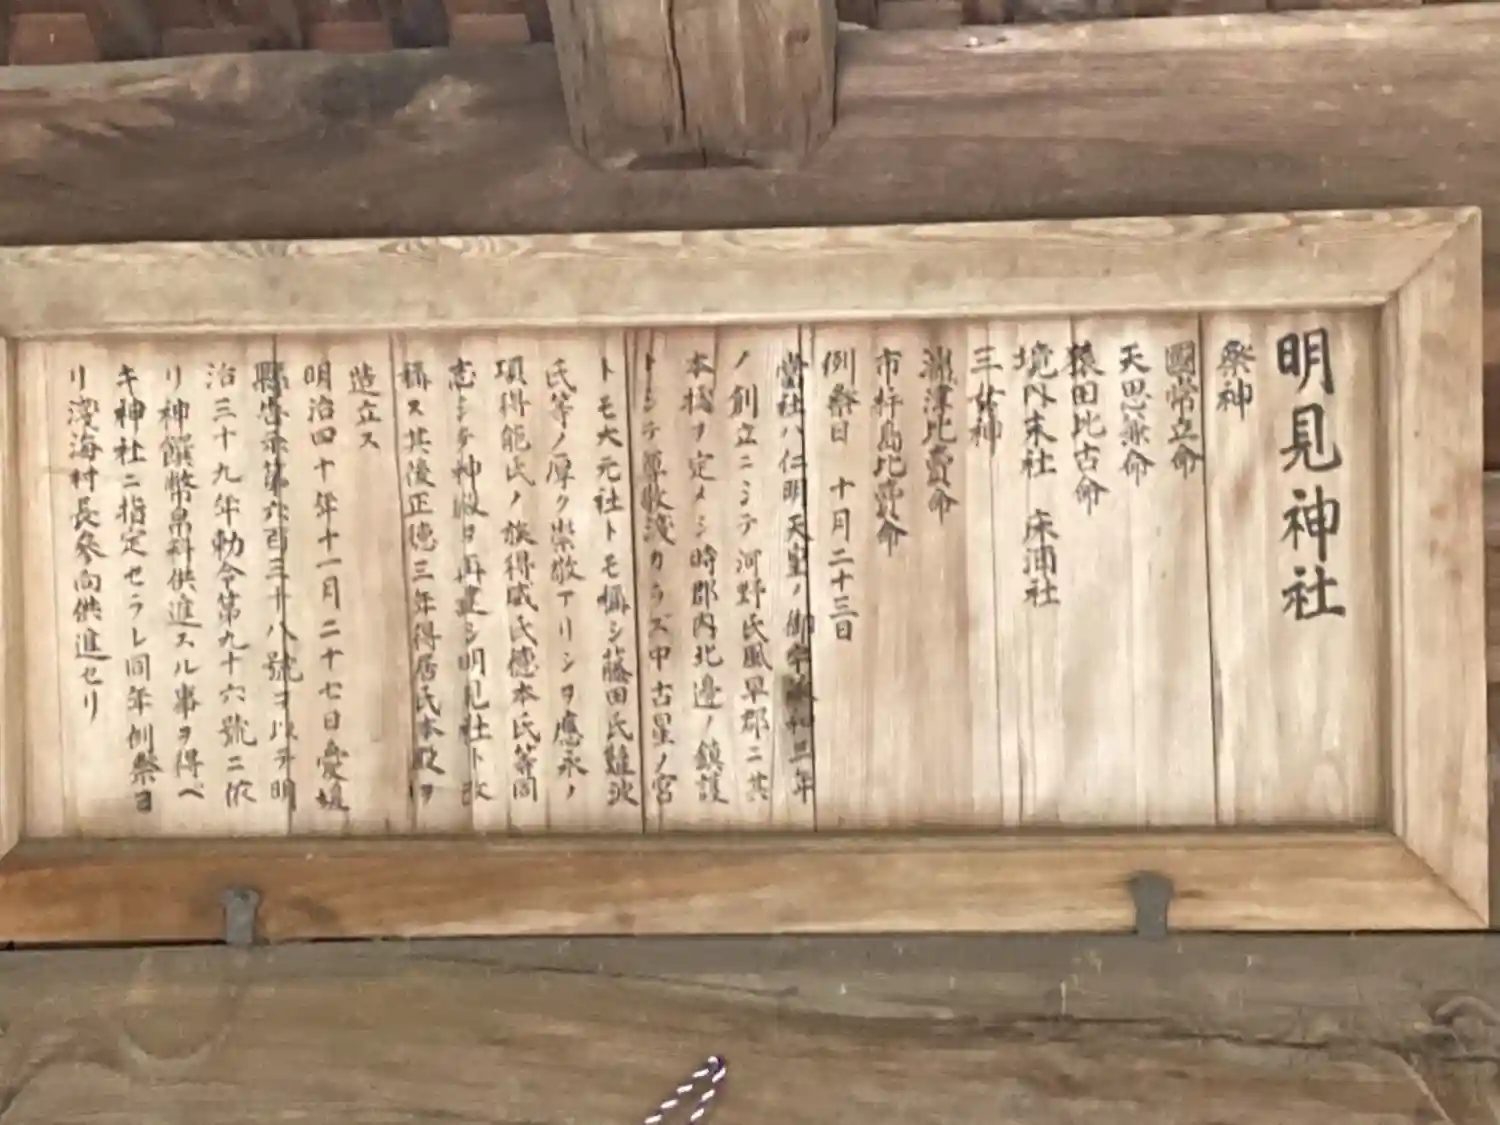 明見神社
祭神
國常立命
天思兼命
猿田比古命
境内末社 床浦社
三女神
湍津比賣命
市杵島比賣命
例祭日 十月二十三日
當社ハ仁明天皇ノ御宇承和三年
ノ創立ニシテ河野氏風早郡ニ其
本拠ヲ定メシ時郡内北邊ノ鎮護
トシテ尊敬淺カラズ中古星ノ宮
トモ大元社トモ稱シ藤田氏難波
氏等ノ厚ク崇敬アリシヲ應永ノ
項得能氏ノ族得威氏徳本氏等同
志シテ神殿ヲ再建シ明見社ト改
稱ス其後正徳三年得居氏本殿ヲ
造立ス
明治四十年十一月二十七日愛媛
縣告示第六百三十八號ヲ以テ明
治三十九年勅令第九十六號ニ依
リ神饌幣帛料供進スル事ヲ得ベ
キ神社ニ指定セラレ同年例祭ヨ
リ淺海村長参向供進セリ